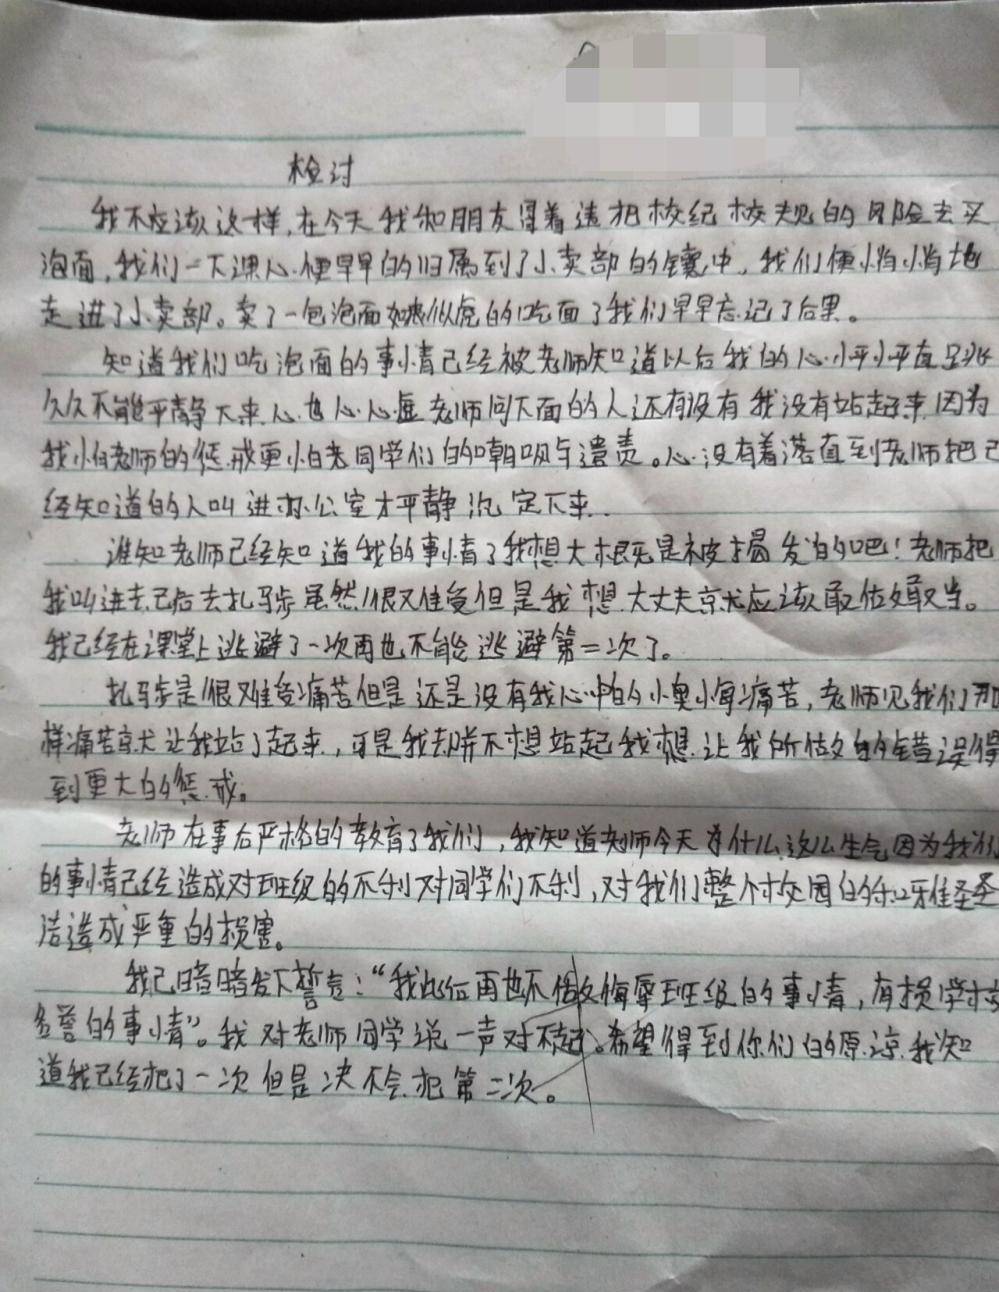 检讨
我不应该这样,在今天我和朋友冒着违犯校纪校规的风险去买
泡面,我们一下课心便早早的归属到了小卖部的囊中,我们便悄悄地
走进了小卖部。卖了一包泡面如狼似虎的吃面了我们早早忘记了后果。
知道我们吃泡面的事情已经被老师知道以后我的心怦怦直跳
久久不能平静下来心也心心虚老师问下面的人还有没有我没有站起来因为
我怕老师的惩戒更怕老同学们的嘲讽与遣责。心没有着落直到老师把已
经知道的人叫进办公室才平静沉定下来.
谁知老师已经知道我的事情了我想大概是被揭发的吧!老师把
我叫进去已后去扎马步虽然很难受但是我想大丈夫就应该敢做敢当。
我已经在课堂上逃避了一次再也不能逃避第二次了。
扎马步是很难受痛苦但是还是没有我心中的懊悔痛苦,老师见我们那
样痛苦就让我站了起来,可是我却并不想站起我想让我所做的错误得
到更大的惩戒。
老师在事后严格的教育了我们,我知道老师今天为什么这么生气因为我们
的事情已经造成对班级的不利对同学们不利,对我们整个校园的和雅圣
洁造成严重的损害。
我已暗暗发下誓言:“我此后再也不做侮辱班级的事情,有损学校
名誉的事情”。我对老师同学说一声对不起。希望得到你们的原谅.我知
道我已经犯了一次但是决不会犯第二次。